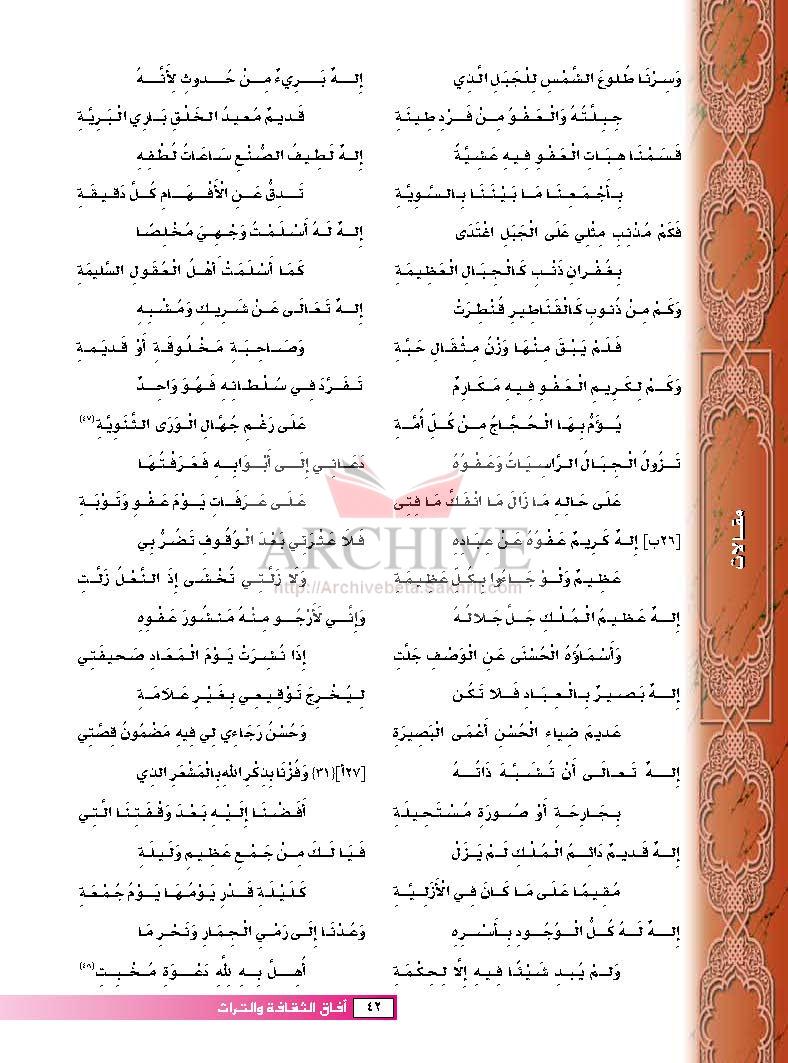 وَسِرْنَا طُلُوعَ الشَّمْسِ لِلْجَبَلِ الَّذِي
جِبِلَّتُهُ وَالْعَفْوُ مِنْ فَرْدِ طِينَةِ
قَسَمْنَا هِبَاتِ الْعَفْوِ فِيهِ عَشِيَّةً
بِأَجْمَعِنَا مَا بَيْنَنَا بِالسَّوِيَّةِ
فَكَمْ مُذْنِبٍ مِثْلِي عَلَى الْجَبَلِ اغْتَدَى
بِغُفْرَانِ ذَنْبٍ كَالْجِبَالِ الْعَظِيمَةِ
وَكَمْ مِنْ ذُنُوبٍ كَالْقَنَاطِيرِ قُنْطِرَتْ
فَلَمْ يَبْقَ مِنْهَا وَزْنُ مِثْقَالِ حَبَّةِ
وَكَمْ لِكَرِيمِ الْعَفْوِ فِيهِ مَكَارِمٌ
يُؤَمُّ بِهَا الْحُجَّاجُ مِنْ كُلِّ أُمَّةِ
تَزُولُ الْجِبَالُ الرَّاسِيَاتُ وَعَفْوُهُ
عَلَى حَالِهِ مَا زَالَ مَا انْفَكَّ مَا فَتِى
[٢٦ب] إِلهٌ كَرِيمٌ عَفْوُهُ عَنْ عِبَادِهِ
عَظِيمٌ وَلَوْ جَاءُوا بِكُلِّ عَظِيمَةِ
إِلهٌ عَظِيمُ الْمُلْكِ جَلَّ جَلَالُهُ
وَأَسْمَاؤُهُ الْحُسْنَى عَنِ الْوَصْفِ جَلَّتِ
إِلهٌ بَصِيرٌ بِالْعِبَادِ فَلا تَكُن
عَدِيمَ ضِيَاءِ الْحُسْنِ أَعْمَى الْبَصِيرَةِ
إِلهٌ تَعَالَى أَنْ تُشَبَّهَ ذَاتُهُ
بِجَارِحَةٍ أَوْ صُورَةٍ مُسْتَحِيلَةِ
إِلهٌ قَدِيمٌ دَائِمُ الْمُلْكِ لَمْ يَزَلْ
مُقِيمًا عَلَى مَا كَانَ فِي الْأَزَلِيَّةِ
إِلهٌ لَهُ كُلُّ الْوُجُودِ بِأَسْرِهِ
وَلَمْ يُبْدِ شَيْئًا فِيهِ إِلَّا لِحِكْمَةِ
إِلهٌ بَرِيءٌ مِنْ حُدوثٍ لِأَنَّهُ
قَدِيمٌ مُعِيدُ الْخَلْقِ بَارِي الْبَرِيَّةِ
إِلهٌ لَطِيفُ الصُّنْعِ سَاعَاتُ لُطْفِهِ
تَدِقُّ عَنِ الْأَفْهَامِ كُلَّ دَقِيقَةِ
إِلهٌ لَهُ أَسْلَمْتُ وَجْهِيَ مُخْلِصًا
كَمَا أَسْلَمَتْ أَهْلُ الْعُقُولِ السَّلِيمَةِ
إِلهٌ تَعَالَى عَنْ شَرِيكٍ وَمُشْبِهٍ
وَصَاحِبَةٍ مَخْلُوقَةٍ أَوْ قَدِيمَةِ
تَفَرَّدَ فِي سُلْطَانِهِ فَهْوَ وَاحِدٌ
عَلَى رَغْمِ جُهَّالِ الْوَرَى الثَّنَوِيَّةِ (٤٧)
دَعَانِي إِلَى أَبْوَابِهِ فَعَرَفْتُهَا
عَلَى عَرَفَاتٍ يَوْمَ عَفْوٍ وَتَوْبَةِ
فَلَا عَثْرَتِي بَعْدَ الْوُقُوفِ تَضُرُّ بِي
وَلَا زَلَّتِي تُخْشَى إِذِ النَّعْلُ زَلَّتِ
وَإِنِّي لَأَرْجُو مِنْهُ مَنْشُورَ عَفْوِهِ
إِذَا نُشِرَتْ يَوْمَ الْمَعَادِ صَحِيفَتِي
لِيُخْرِجَ تَوْقِيعِي بِغَيْرِ عَلَامَةِ
وَحُسْنُ رَجَاءِي لِي فِيهِ مَضْمُونُ قِصَّتِي
[٢٧أ]{٣١} وَفُزْنَا بِذِكْرِ اللهِ بِالْمَشْعَرِ الذِي
أَفَضْنَا إِلَيْهِ بَعْدَ وَقْفَتِنَا الَّتِي
فَيَا لَكَ مِنْ جَمْعٍ عَظِيمٍ وَلَيْلَةِ
كَلَيْلَةِ قَدْرٍ يَوْمُهَا يَوْمُ جُمْعَةِ
وَعُدْنَا إِلَى رَمْيِ الْجِمَارِ وَنَحْرِ مَا
أُهِلَّ بِهِ لِلَّهِ دَعْوَةَ مُخْبِتِ (٤٨)
مقالات
ARCHIVE
http://Archivebeta.Sakhrit.com
٤٢ آفاق الثقافة والتراث